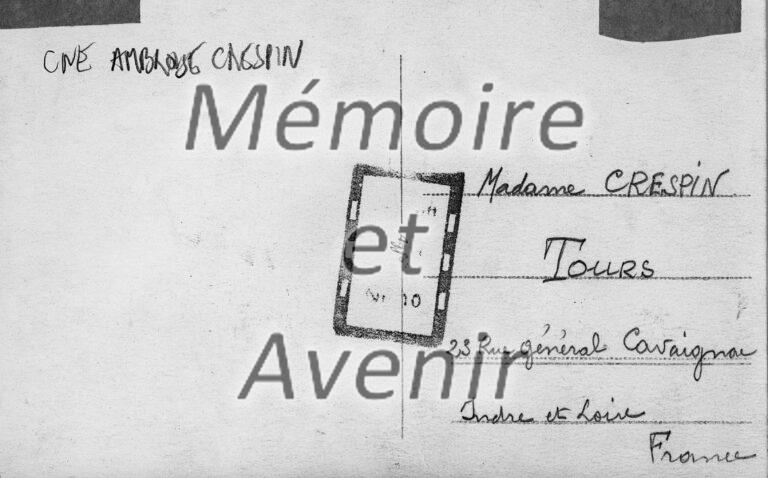 CNE AMBROISE CRESPIN
Mémoire
et
Avenir
Madame CRESPIN
TOURS
23 Rue général Cavaignac
Indre et Loire
France
10